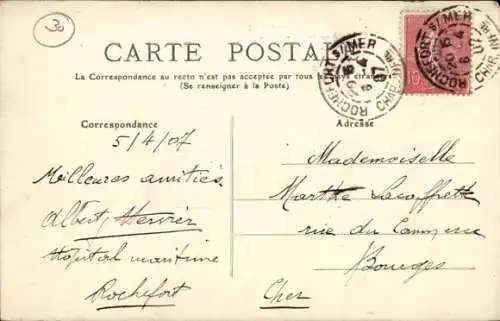 30
CARTE POSTALE
La Correspondance au recto n'est pas acceptée par tous les pays étrangers
(Se renseigner à la Poste)
ROCHEFORT S/ MER
CHAR. INFRE
ROCHEFORT S/ MER
CHAR. INFRE
10
Correspondance
Adresse
5/4/07
Meilleures amitiés
Albert
Hôpital maritime
Rochefort
Mademoiselle
Marthe
rue du Commerce
Bourges
Cher